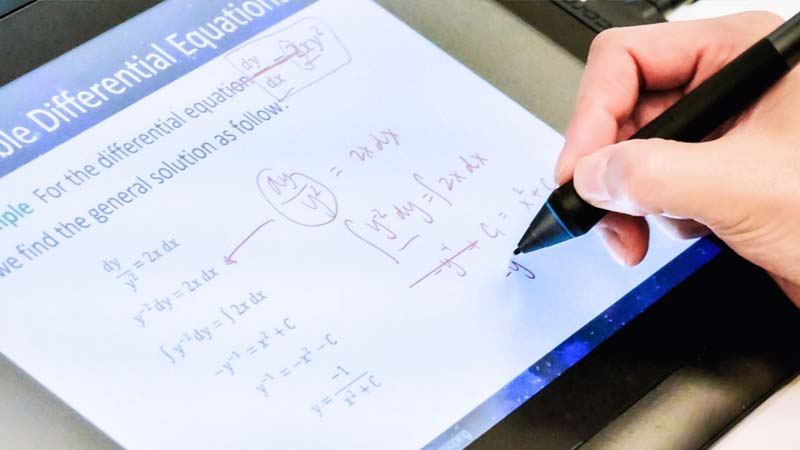 ble Differential Equations
mple For the differential equation dy/dx = 2xy²
we find the general solution as follow:
dy/y² = 2x dx
y⁻² dy = 2x dx
∫ y⁻² dy = ∫ 2x dx
-y⁻¹ = x² + C
y⁻¹ = -x² - C
y = -1/(x² + C)
dy/y² = 2x dx
∫ y² dy = ∫ 2x dx
C₁ = x² + C
-y